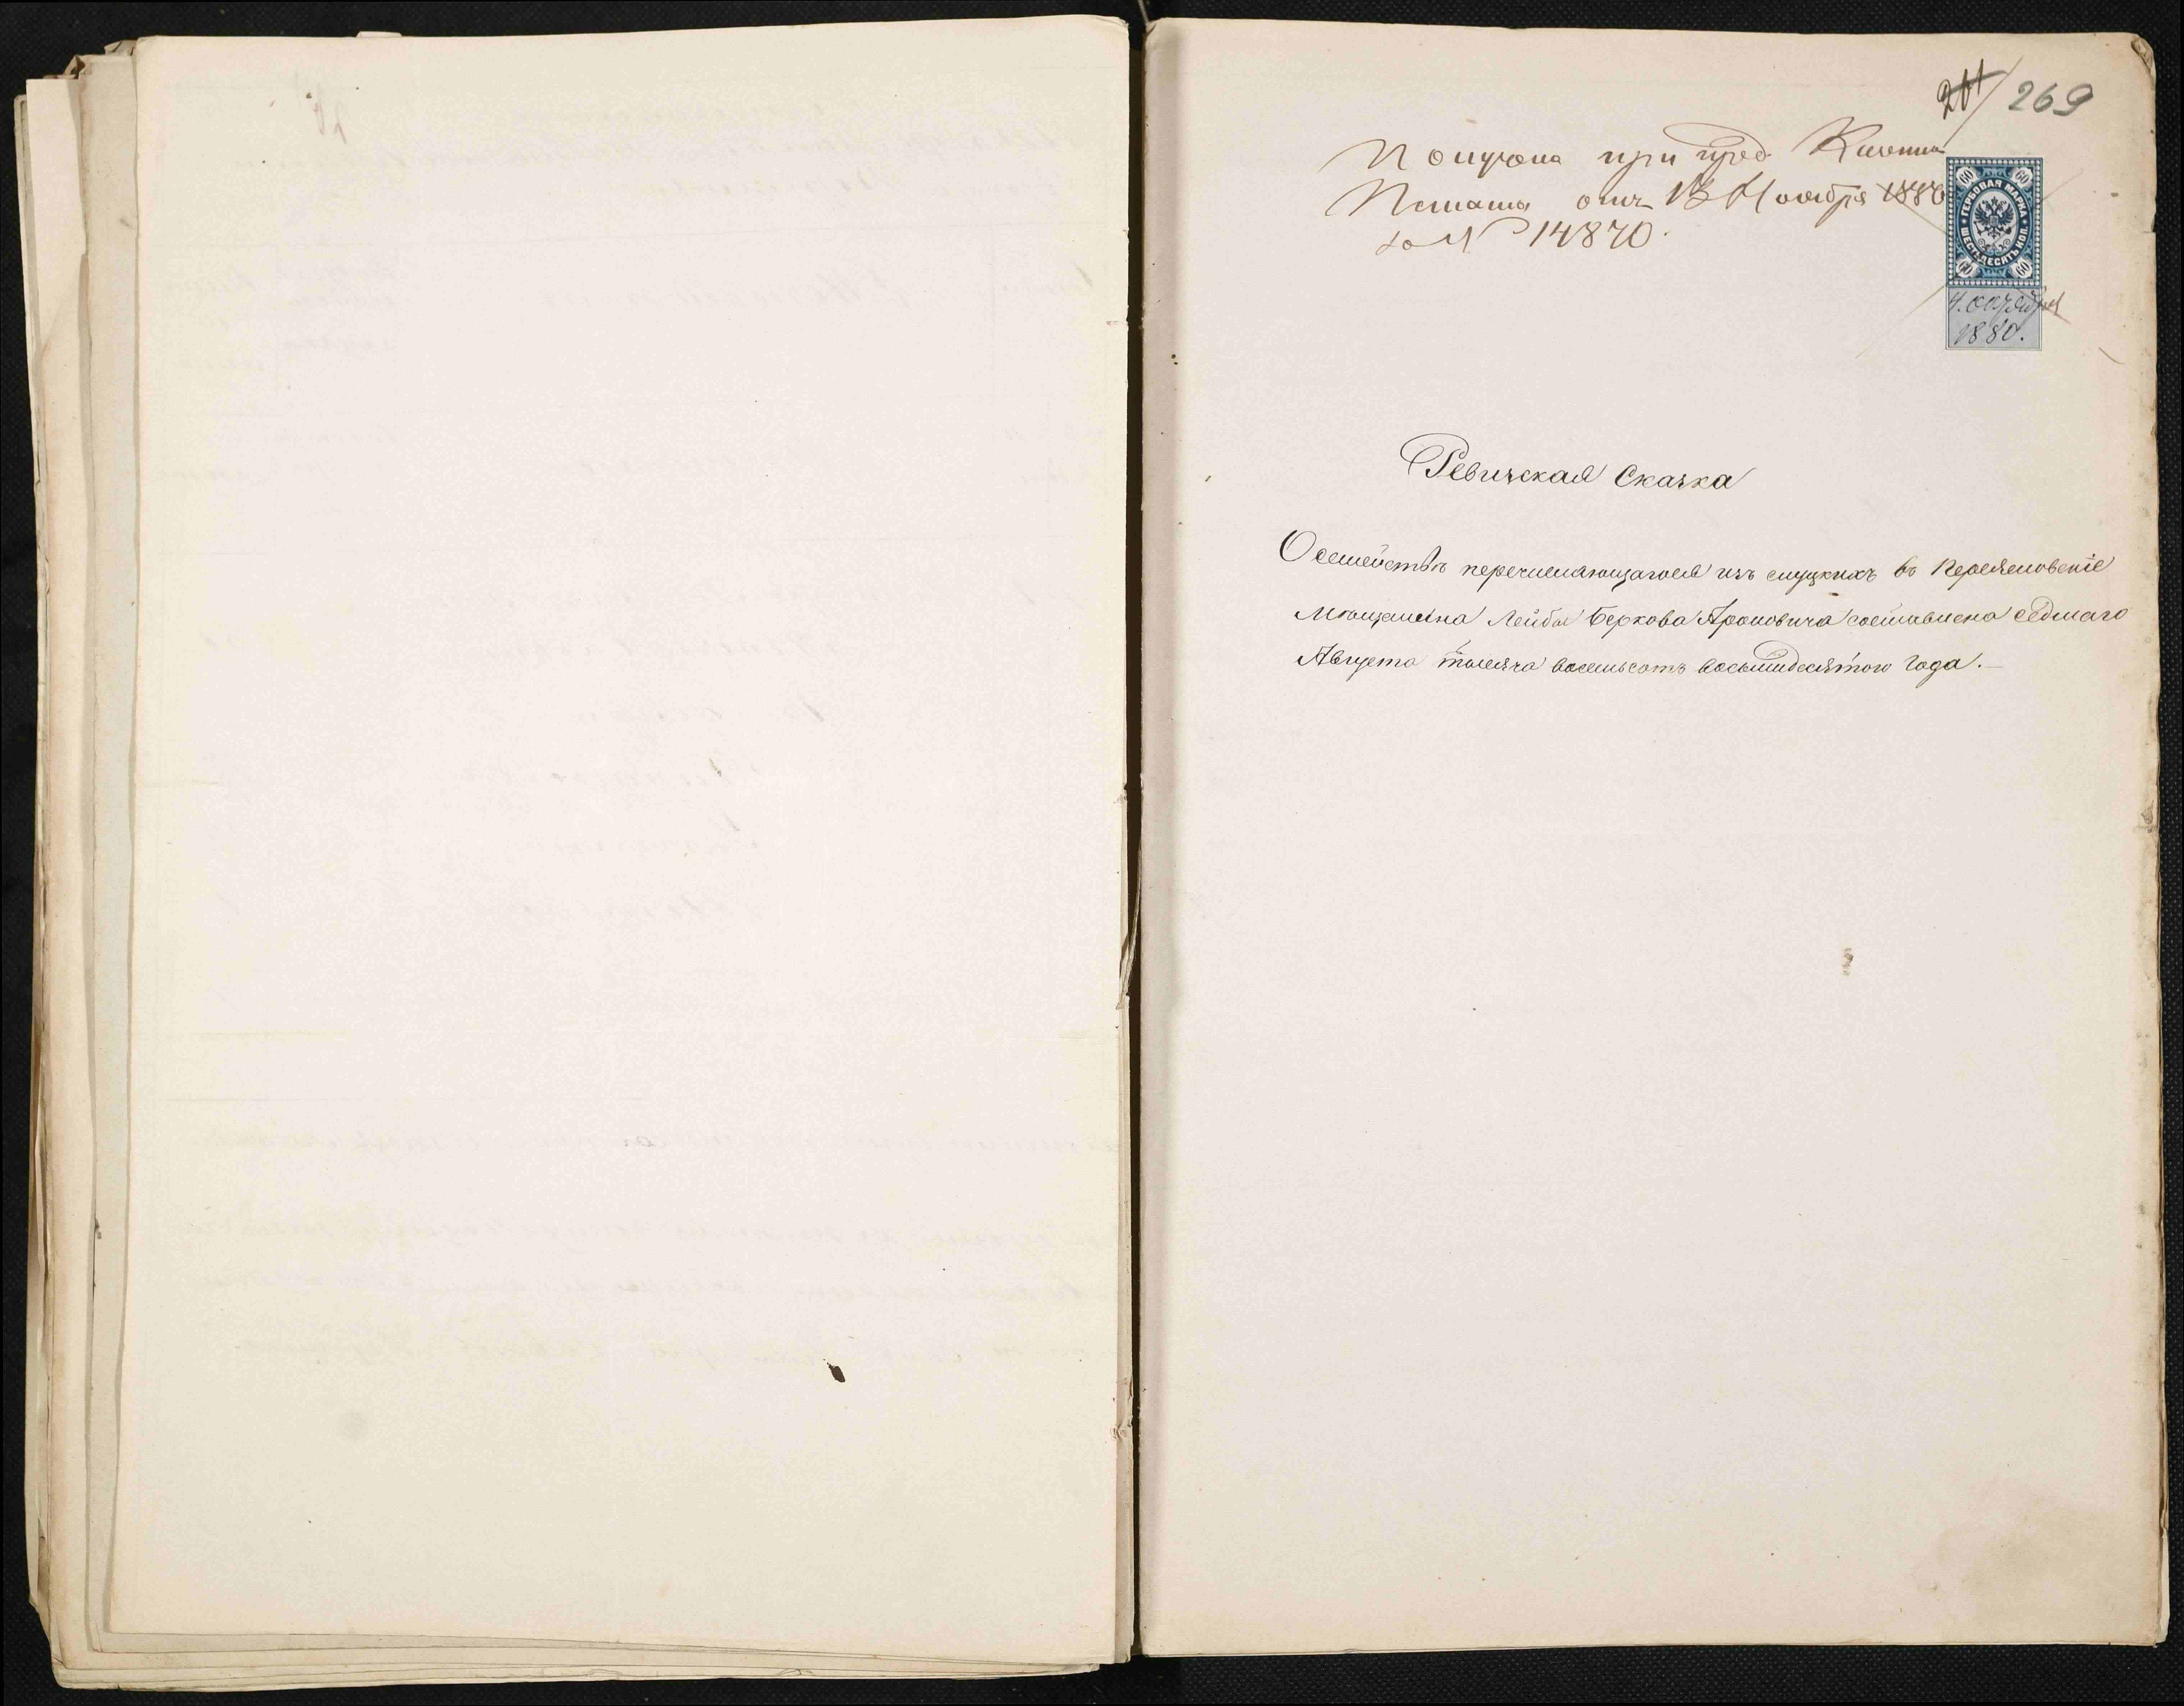 201/269
Получена при пред. Казенной
Палаты отъ 13 Ноября 1880
за № 14870.
60 60
ГЕРБОВАЯ МАРКА
ШЕСТЬДЕСЯТЪ КОП.
60 60
4. октября
1880.
Ревизская Сказка
О семействѣ перечисляющагося изъ слуцкихъ въ
Мѣщанина Лейбы Беркова Ароновича составлена седмаго
Августа тысяча восемьсотъ восьмидесятого года.